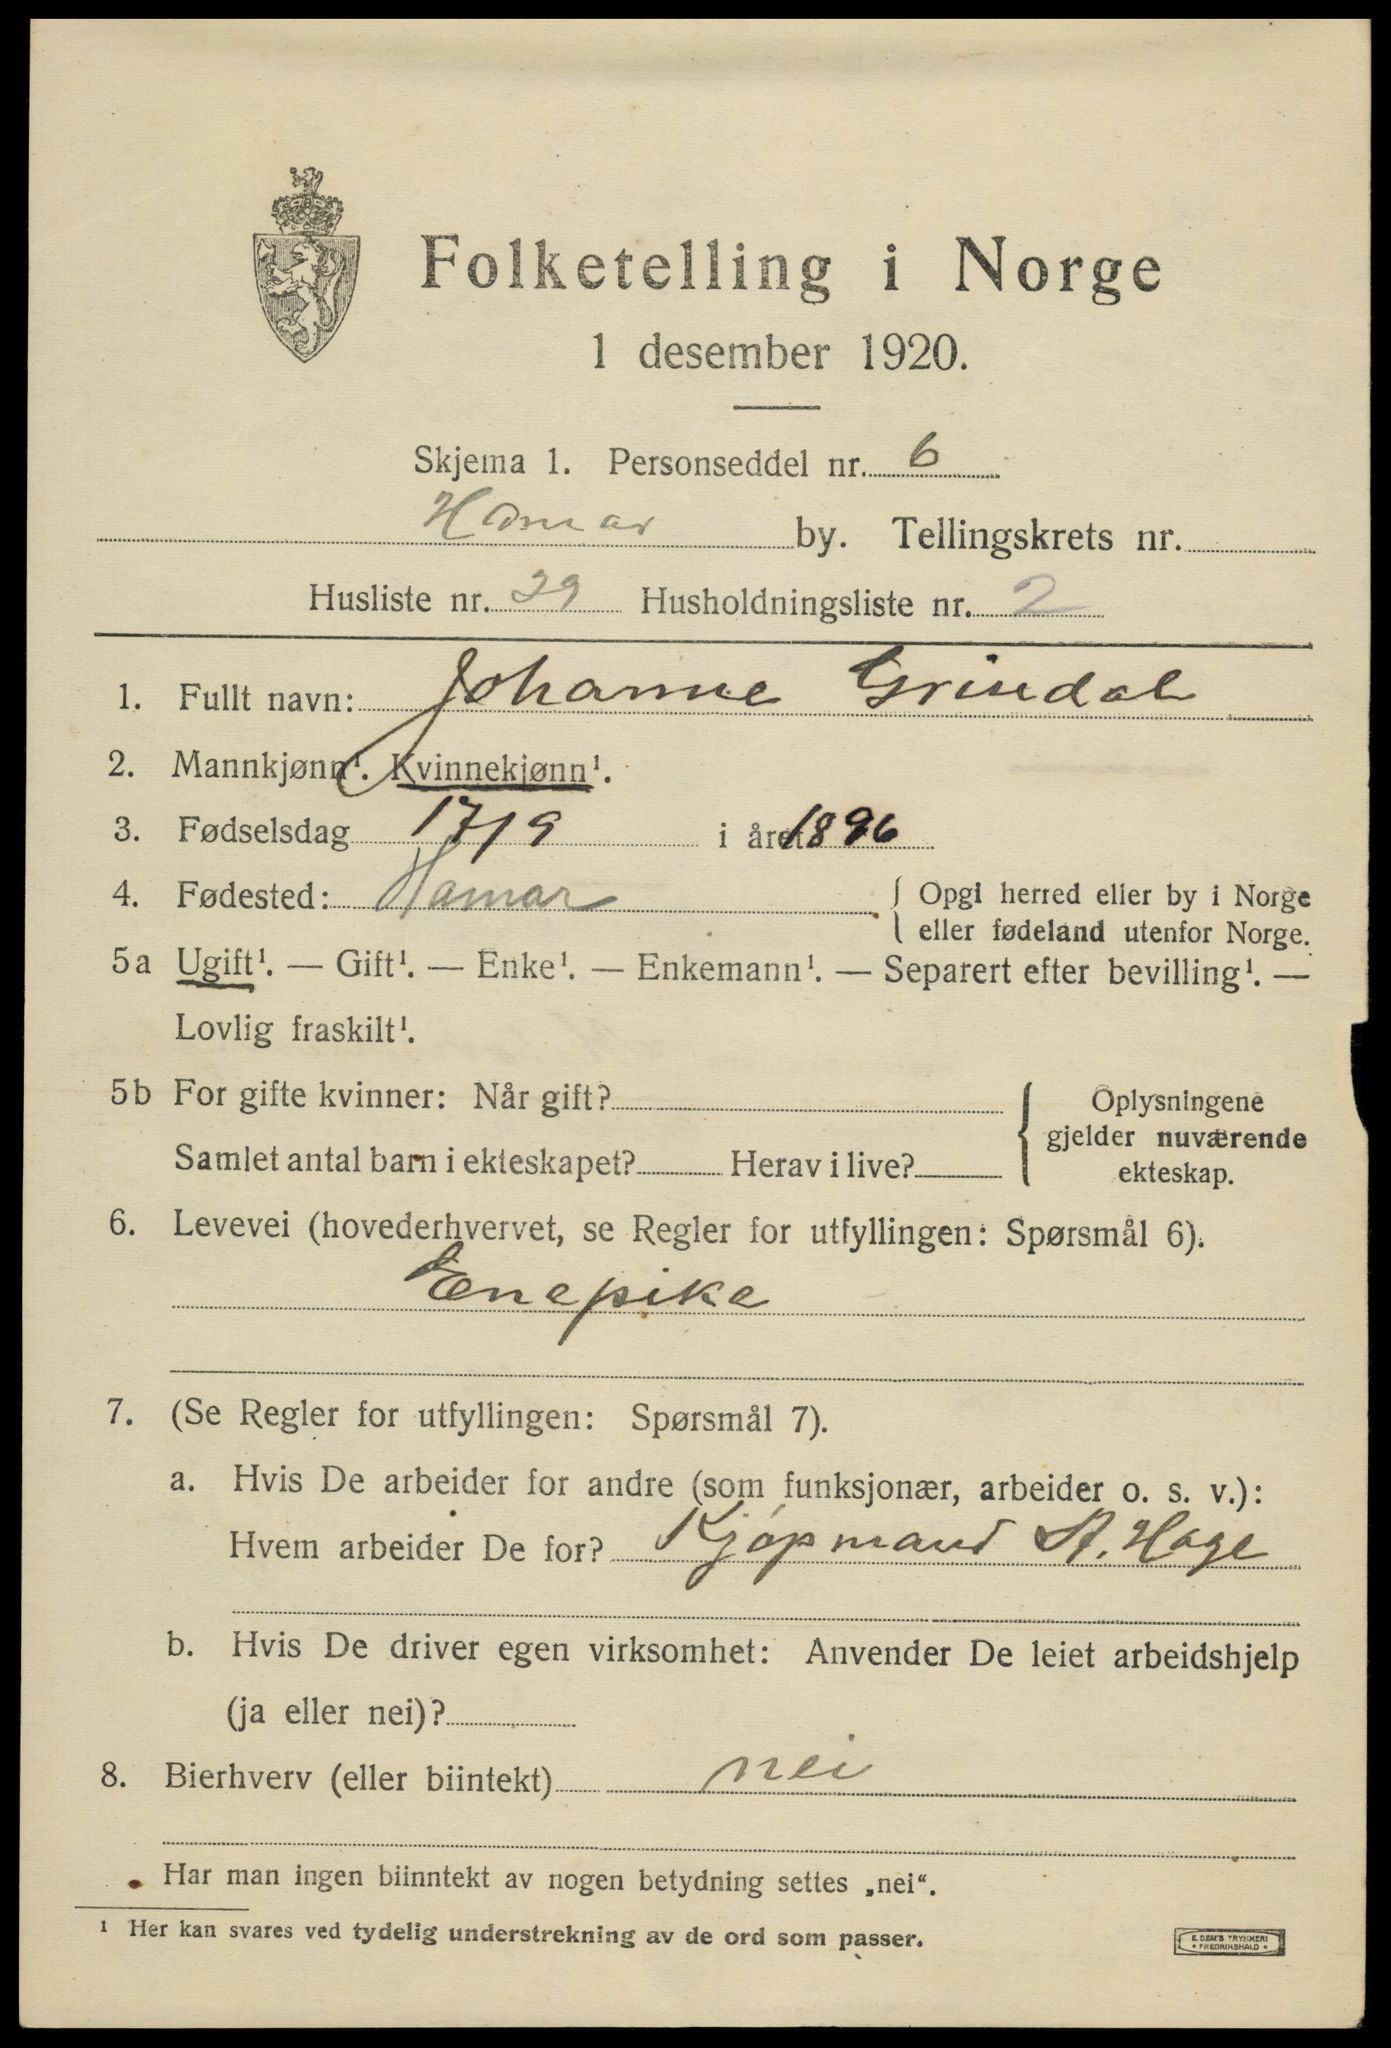 Folketelling i Norge
1 desember 1920.
Skjema 1. Personseddel nr. 6
Hamar by. Tellingskrets nr.
Husliste nr. 29 Husholdningsliste nr. 2
1. Fullt navn: Johanne Grindal
2. Mannkjønn¹. Kvinnekjønn¹.
3. Fødselsdag 17/9 i året 1896
4. Fødested: Hamar { Opgi herred eller by i Norge
eller fødeland utenfor Norge.
5a Ugift¹. — Gift¹. — Enke¹. — Enkemann¹. — Separert efter bevilling¹. —
Lovlig fraskilt¹.
5b For gifte kvinner: Når gift? { Oplysningene
gjelder nuværende
Samlet antal barn i ekteskapet? Herav i live? ekteskap.
6. Levevei (hovederhvervet, se Regler for utfyllingen: Spørsmål 6).
Enepike
7. (Se Regler for utfyllingen: Spørsmål 7).
a. Hvis De arbeider for andre (som funksjonær, arbeider o. s. v.):
Hvem arbeider De for? Kjøpmand St. Hage
b. Hvis De driver egen virksomhet: Anvender De leiet arbeidshjelp
(ja eller nei)?
8. Bierhverv (eller biintekt) nei
Har man ingen biinntekt av nogen betydning settes „nei“.
¹ Her kan svares ved tydelig understrekning av de ord som passer.
E. SEM'S TRYKKERI
• FREDRIKSHALD •